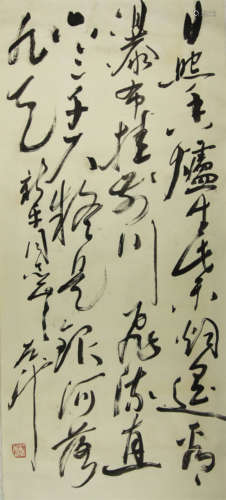 日照香爐生紫烟遥看
瀑布挂前川飛流直
下三千尺疑是銀河落
九天
同志